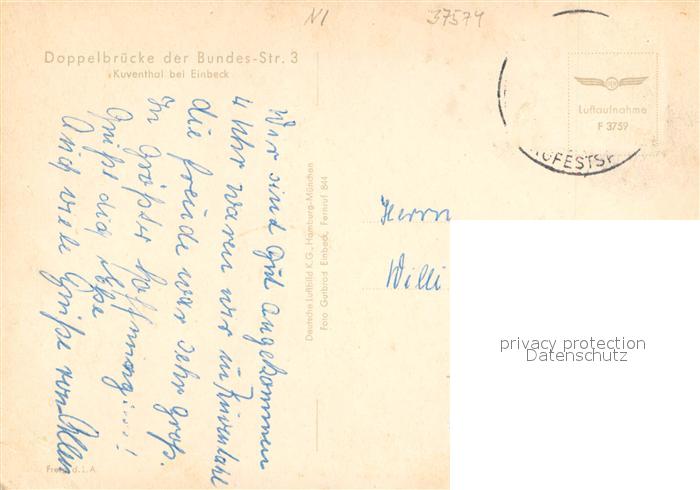 N1
37574
Doppelbrücke der Bundes-Str. 3
Kuventhal bei Einbeck
Luftaufnahme
F 3759
Wir sind gut angekommen
4 Uhr waren wir in
die freude war sehr groß.
In größter Hoffnung
Grüßt dich
Und viele Grüße von Allen
Deutsche Luftbild K.G., Hamburg-München
Foto Gutbrod Einbeck, Fernruf 844
Herrn
Willi
privacy protection
Datenschutz